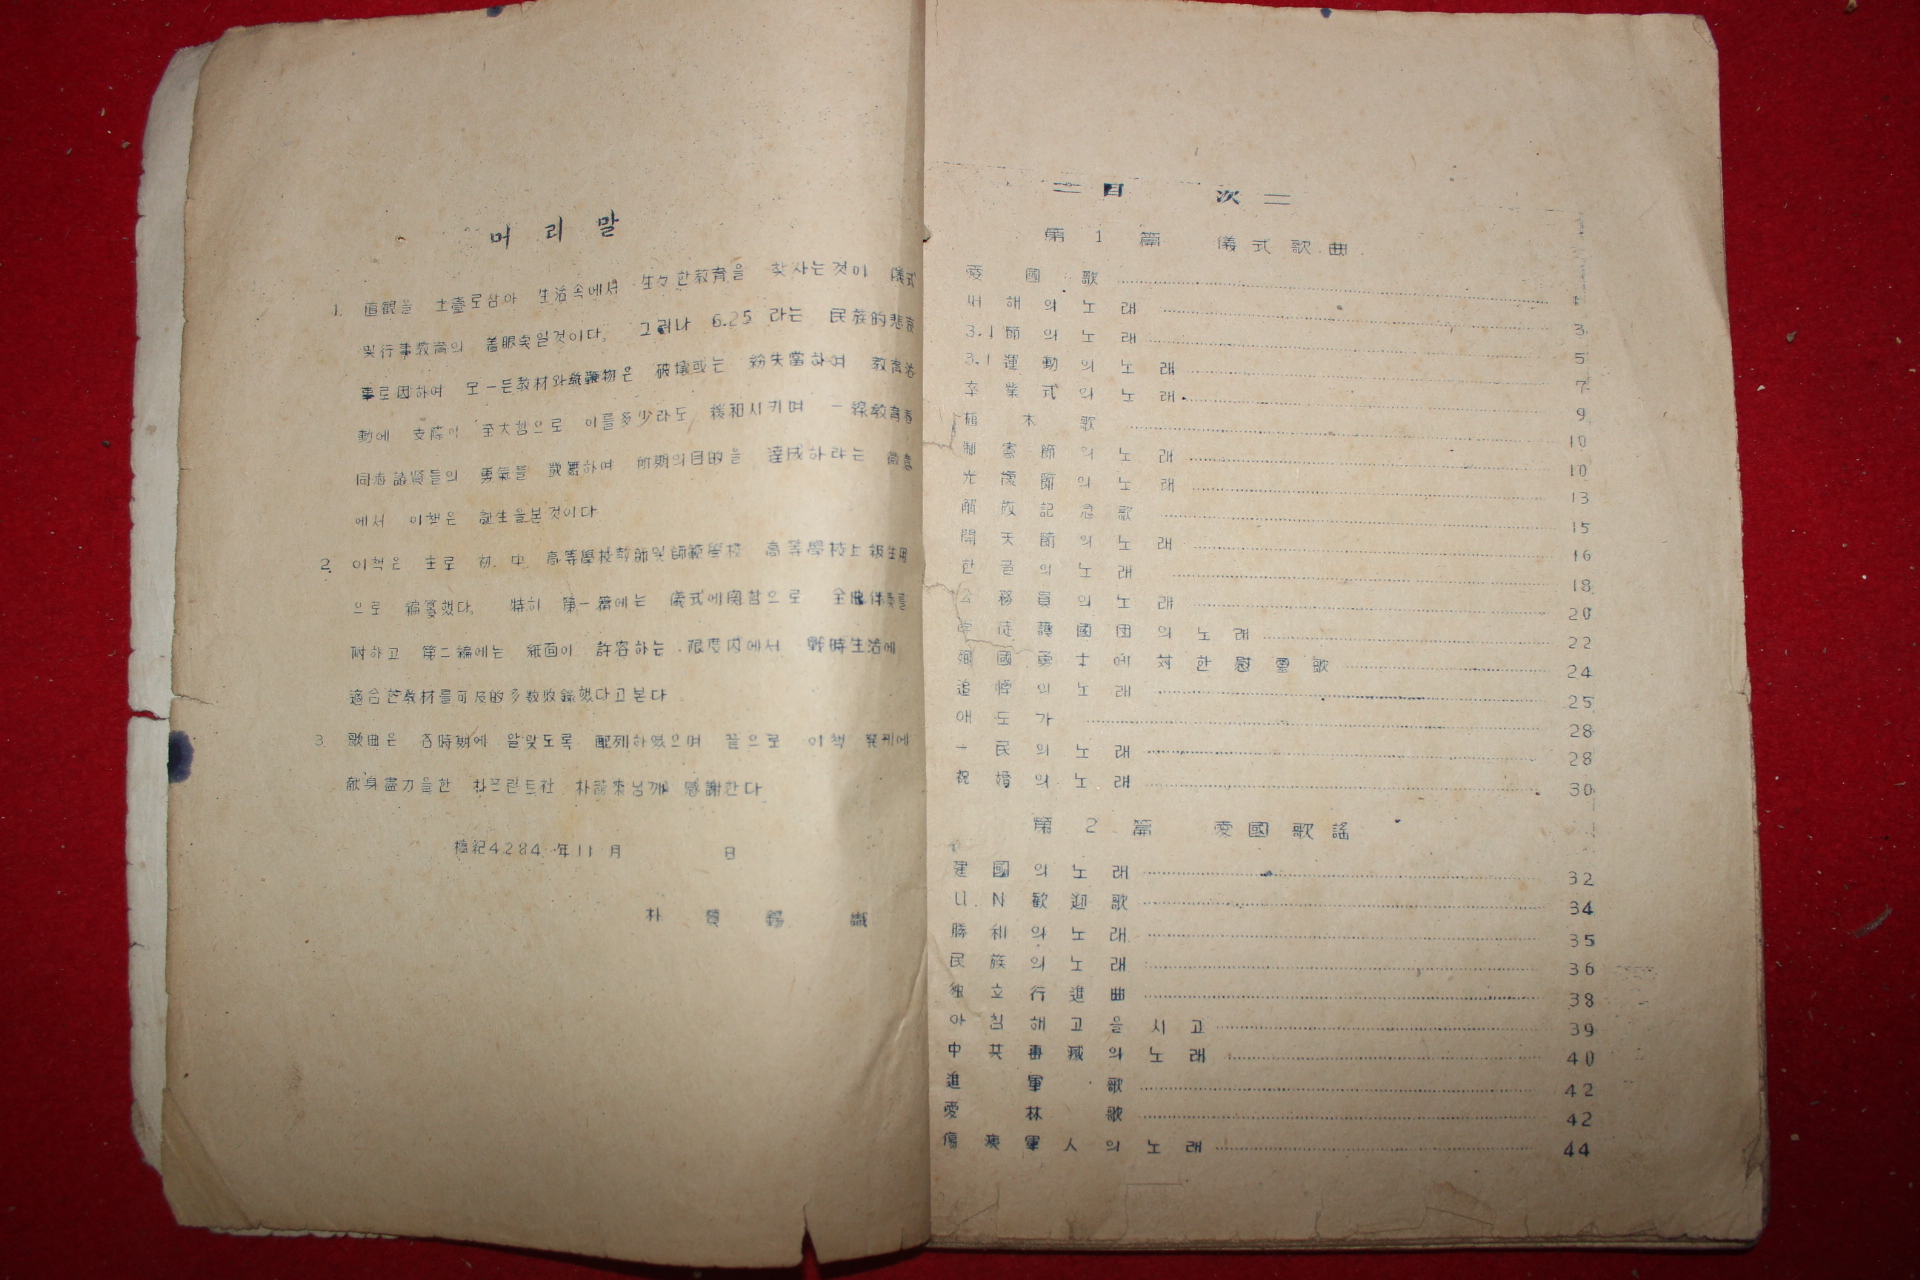 머리말
1. 直観을 土臺로삼아 生活속에서 生々한敎育을 찾자는것이 儀式
및行事敎育의 着眼矣일것이다. 그러나 6.25 라는 民族的悲哀
事로因하여 모ー든敎材와 은 破壞或는 紛失當하여 敎育活
動에 支障이 至大함으로 이를多少라도 緩和시키며 一線敎育者
同志諸賢들의 勇氣를 鼓舞하여 所期의目的을 達成하라는 微意
에서 이책은 誕生을본것이다
2. 이책은 主로 初. 中. 高等學校敎師및師範學校 高等學校上級生用
으로 編纂했다. 特히 第一篇에는 儀式에関함으로 全曲伴奏를
附하고 第二編에는 紙面이 許容하는 限度内에서 戰時生活에
適合한敎材를可及的多数收録했다고본다
3. 歌曲은 各時期에 알맞도록 配列하였으며 끝으로 이책 発刊에
献身盡力을한 朴프린트社 朴 님께 感謝한다
檀紀4284年11月 日
朴 錫 識
=目 次=
第1篇 儀式歌曲
愛國歌 1
새해의노래 3
3.1節의노래 5
3.1運動의노래 7
卒業式의노래 9
植木歌 10
制憲節의노래 10
光復節의노래 13
解放記念歌 15
開天節의노래 16
한글의노래 18
公務員의노래 20
学徒護國団의노래 22
殉國勇士에対한慰靈歌 24
追悼의노래 25
애도가 28
一民의노래 28
祝婚의노래 30
第2篇 愛國歌謠
建國의노래 32
U.N歡迎歌 34
勝利의노래 35
民族의노래 36
独立行進曲 38
아침해고을시고 39
中共 滅의노래 40
進軍歌 42
愛林歌 42
傷痍軍人의노래 44